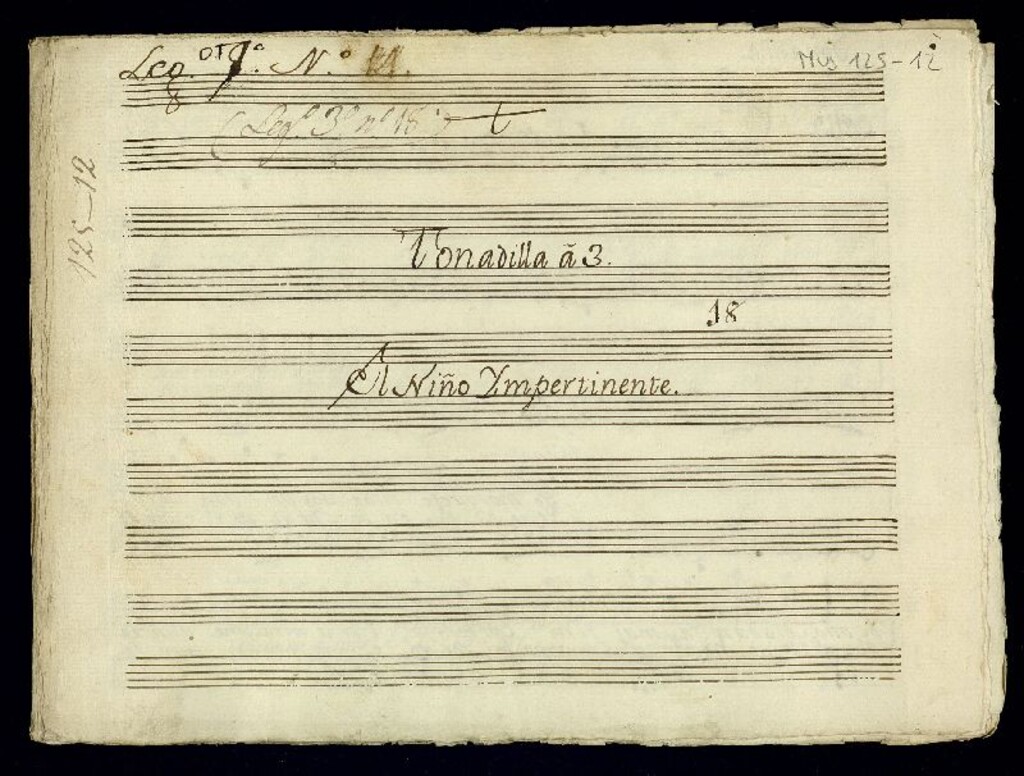 Leg. 7º. N.º 11.
Mus 125-12
(Legº. 3º nº 18º)
125-12
Tonadilla ã 3.
18
El Niño Ympertinente.